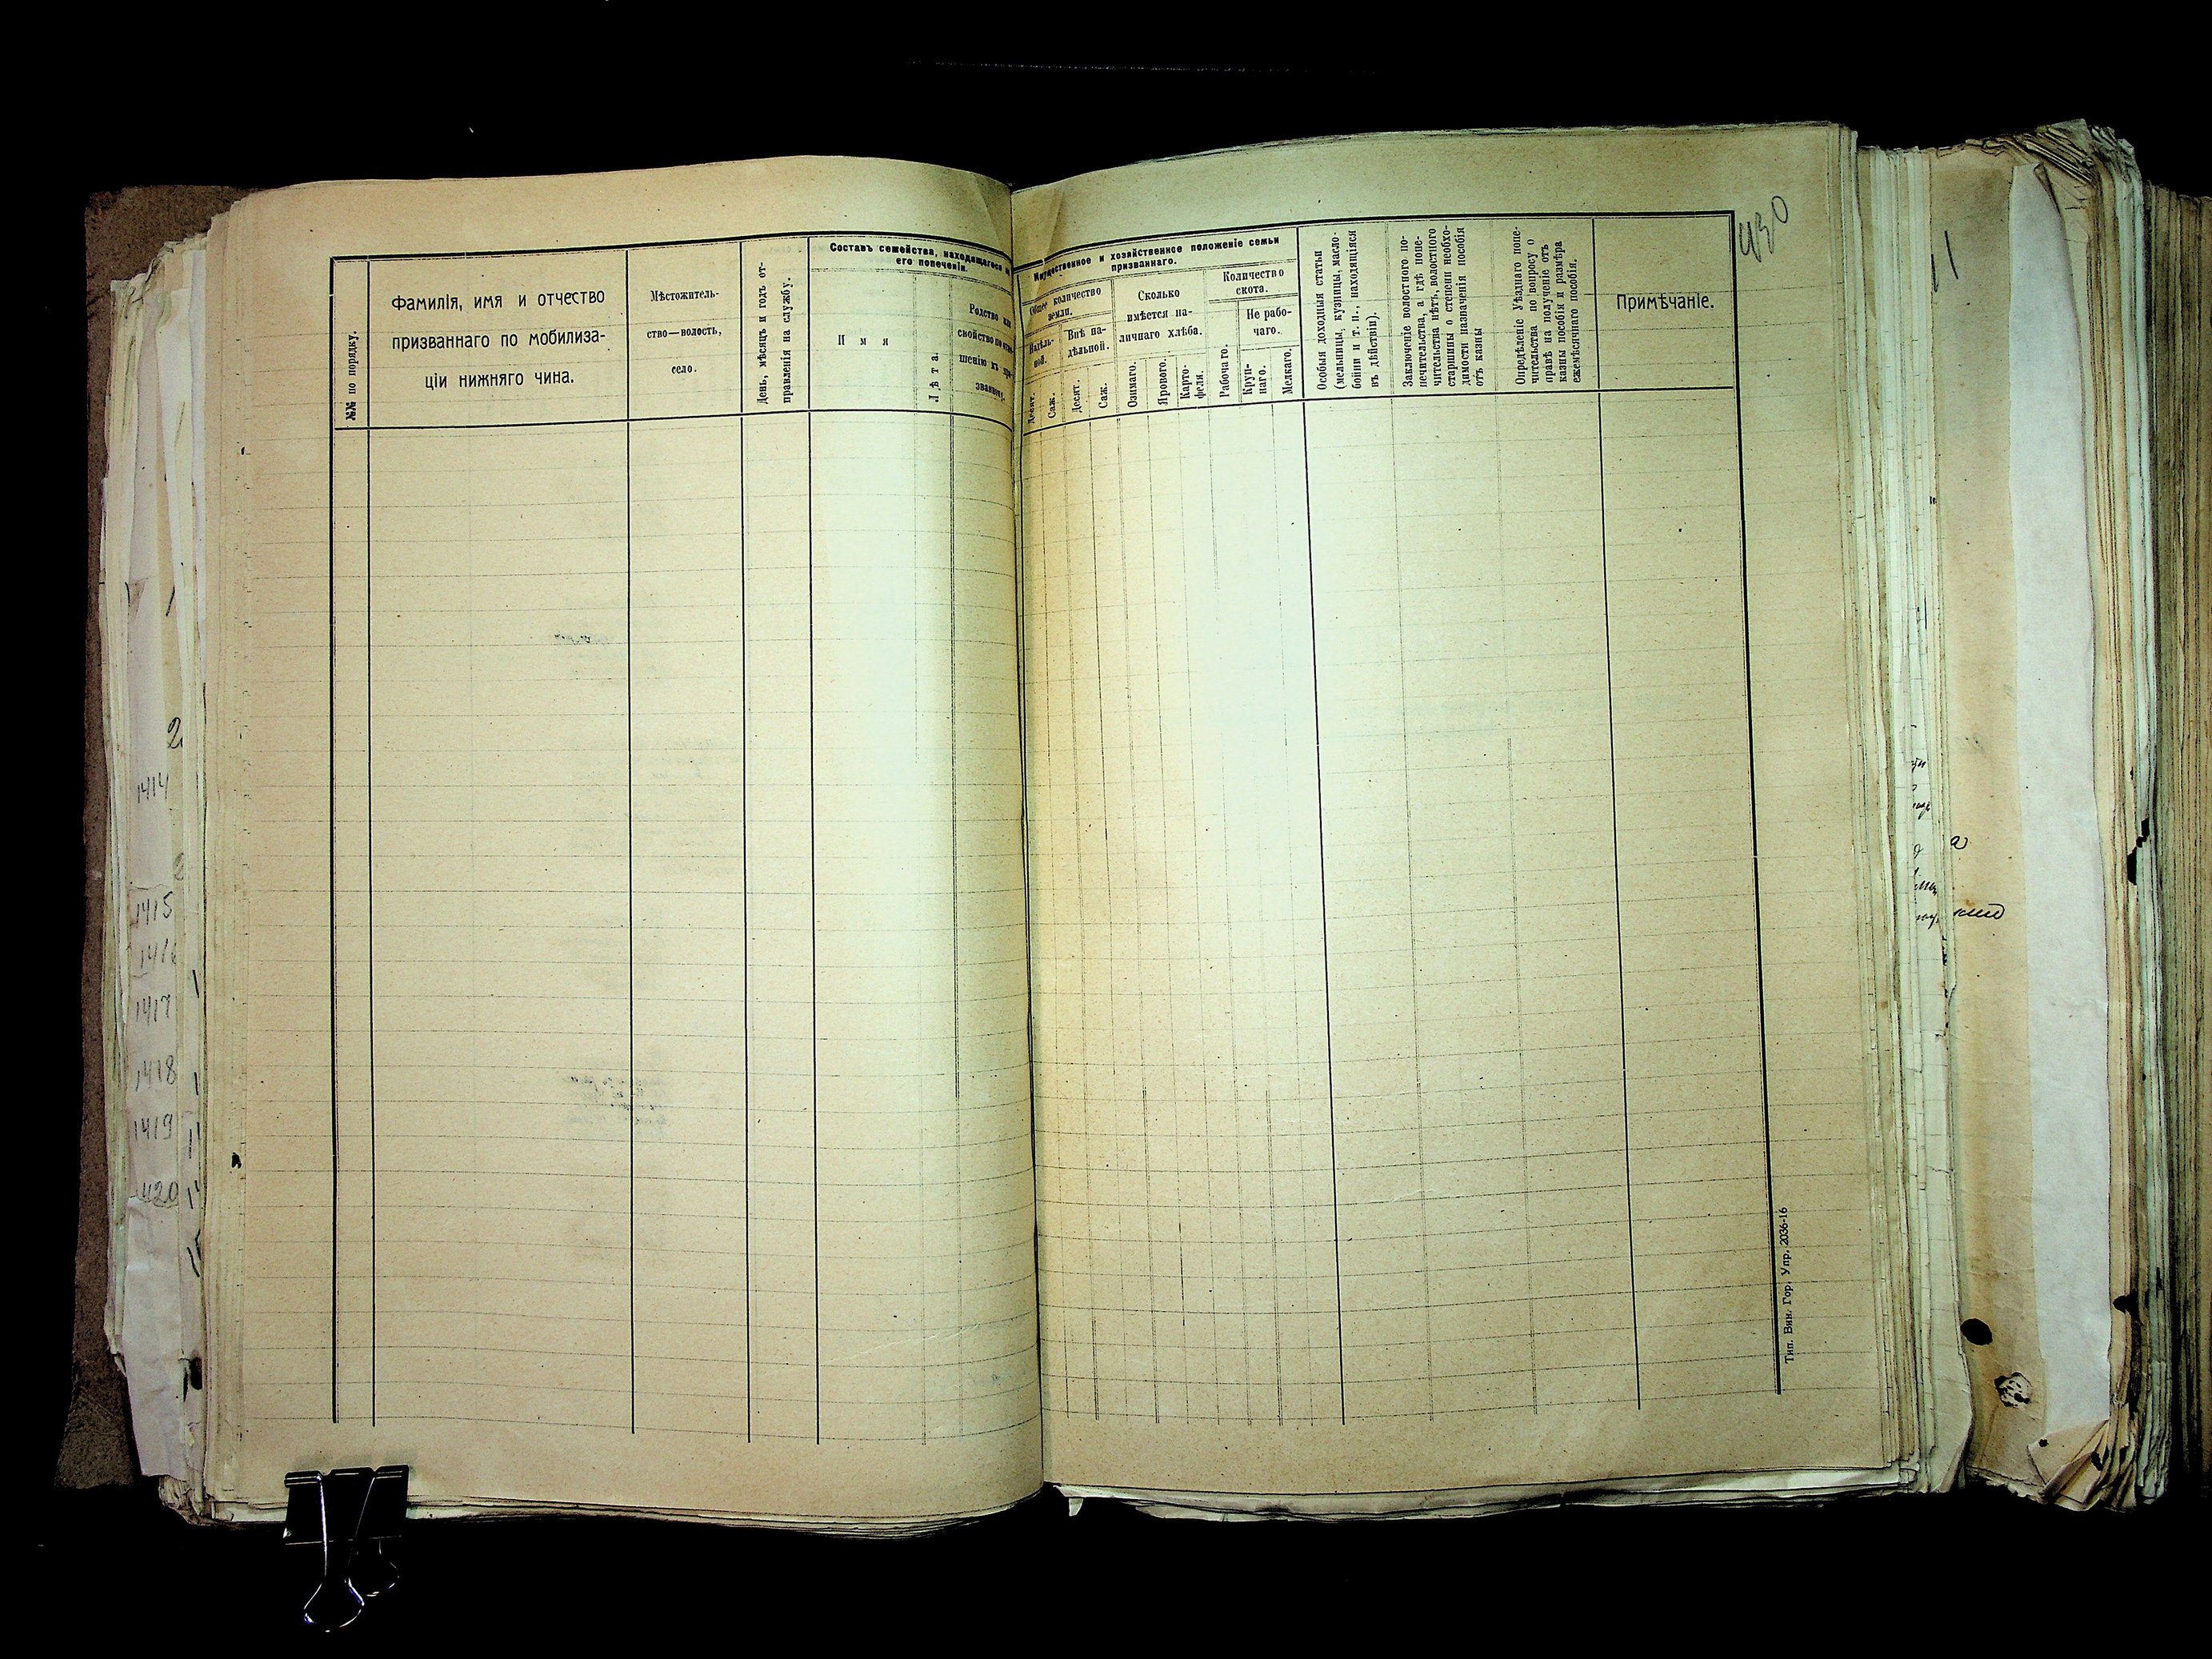 №№ по порядку.
Фамилія, имя и отчество
призваннаго по мобилиза-
ціи нижняго чина.
Мѣстожитель-
ство—волость,
село.
День, мѣсяцъ и годъ от-
правленія на службу.
Составъ семейства, находящагося
его попеченіи.
И м я
Лѣта.
Родство или
свойство по отно-
шенію къ при-
званному.
Имущественное и хозяйственное положеніе семьи
призваннаго.
Общее количество
земли.
Надѣль-
ной.
Внѣ на-
дѣльной.
Десят.
Саж.
Десят.
Саж.
Сколько
имѣется на-
личнаго хлѣба.
Озимаго.
Ярового.
Карто-
фели.
Количество
скота.
Рабочаго.
Не рабо-
чаго.
Круп-
наго.
Мелкаго.
Особыя доходныя статьи
(мельницы, кузницы, масло-
бойни и т. п., находящіяся
въ дѣйствіи).
Заключеніе волостного по-
печительства, а гдѣ попе-
чительства нѣтъ, волостного
старшины о степени необхо-
димости назначенія пособія
отъ казны
Опредѣленіе Уѣзднаго попе-
чительства по вопросу о
правѣ на полученіе отъ
казны пособія и размѣра
ежемѣсячнаго пособія.
Примѣчаніе.
430
Тип. Вин. Гор. Упр. 2036-16
1414
1415
1417
1418
1419
1420